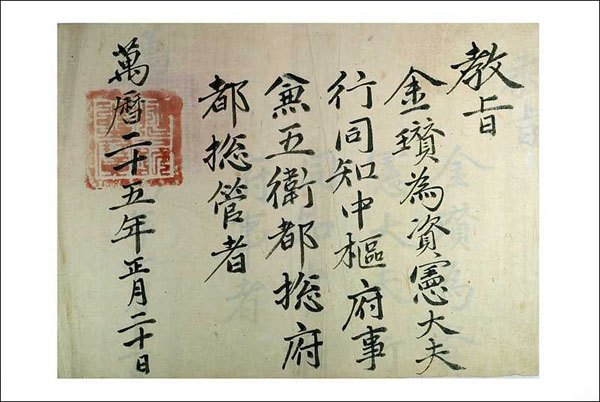 教旨
金瓚為資憲大夫
行同知中樞府事
兼五衛都揔府
都揔管者
萬曆二十五年正月二十日